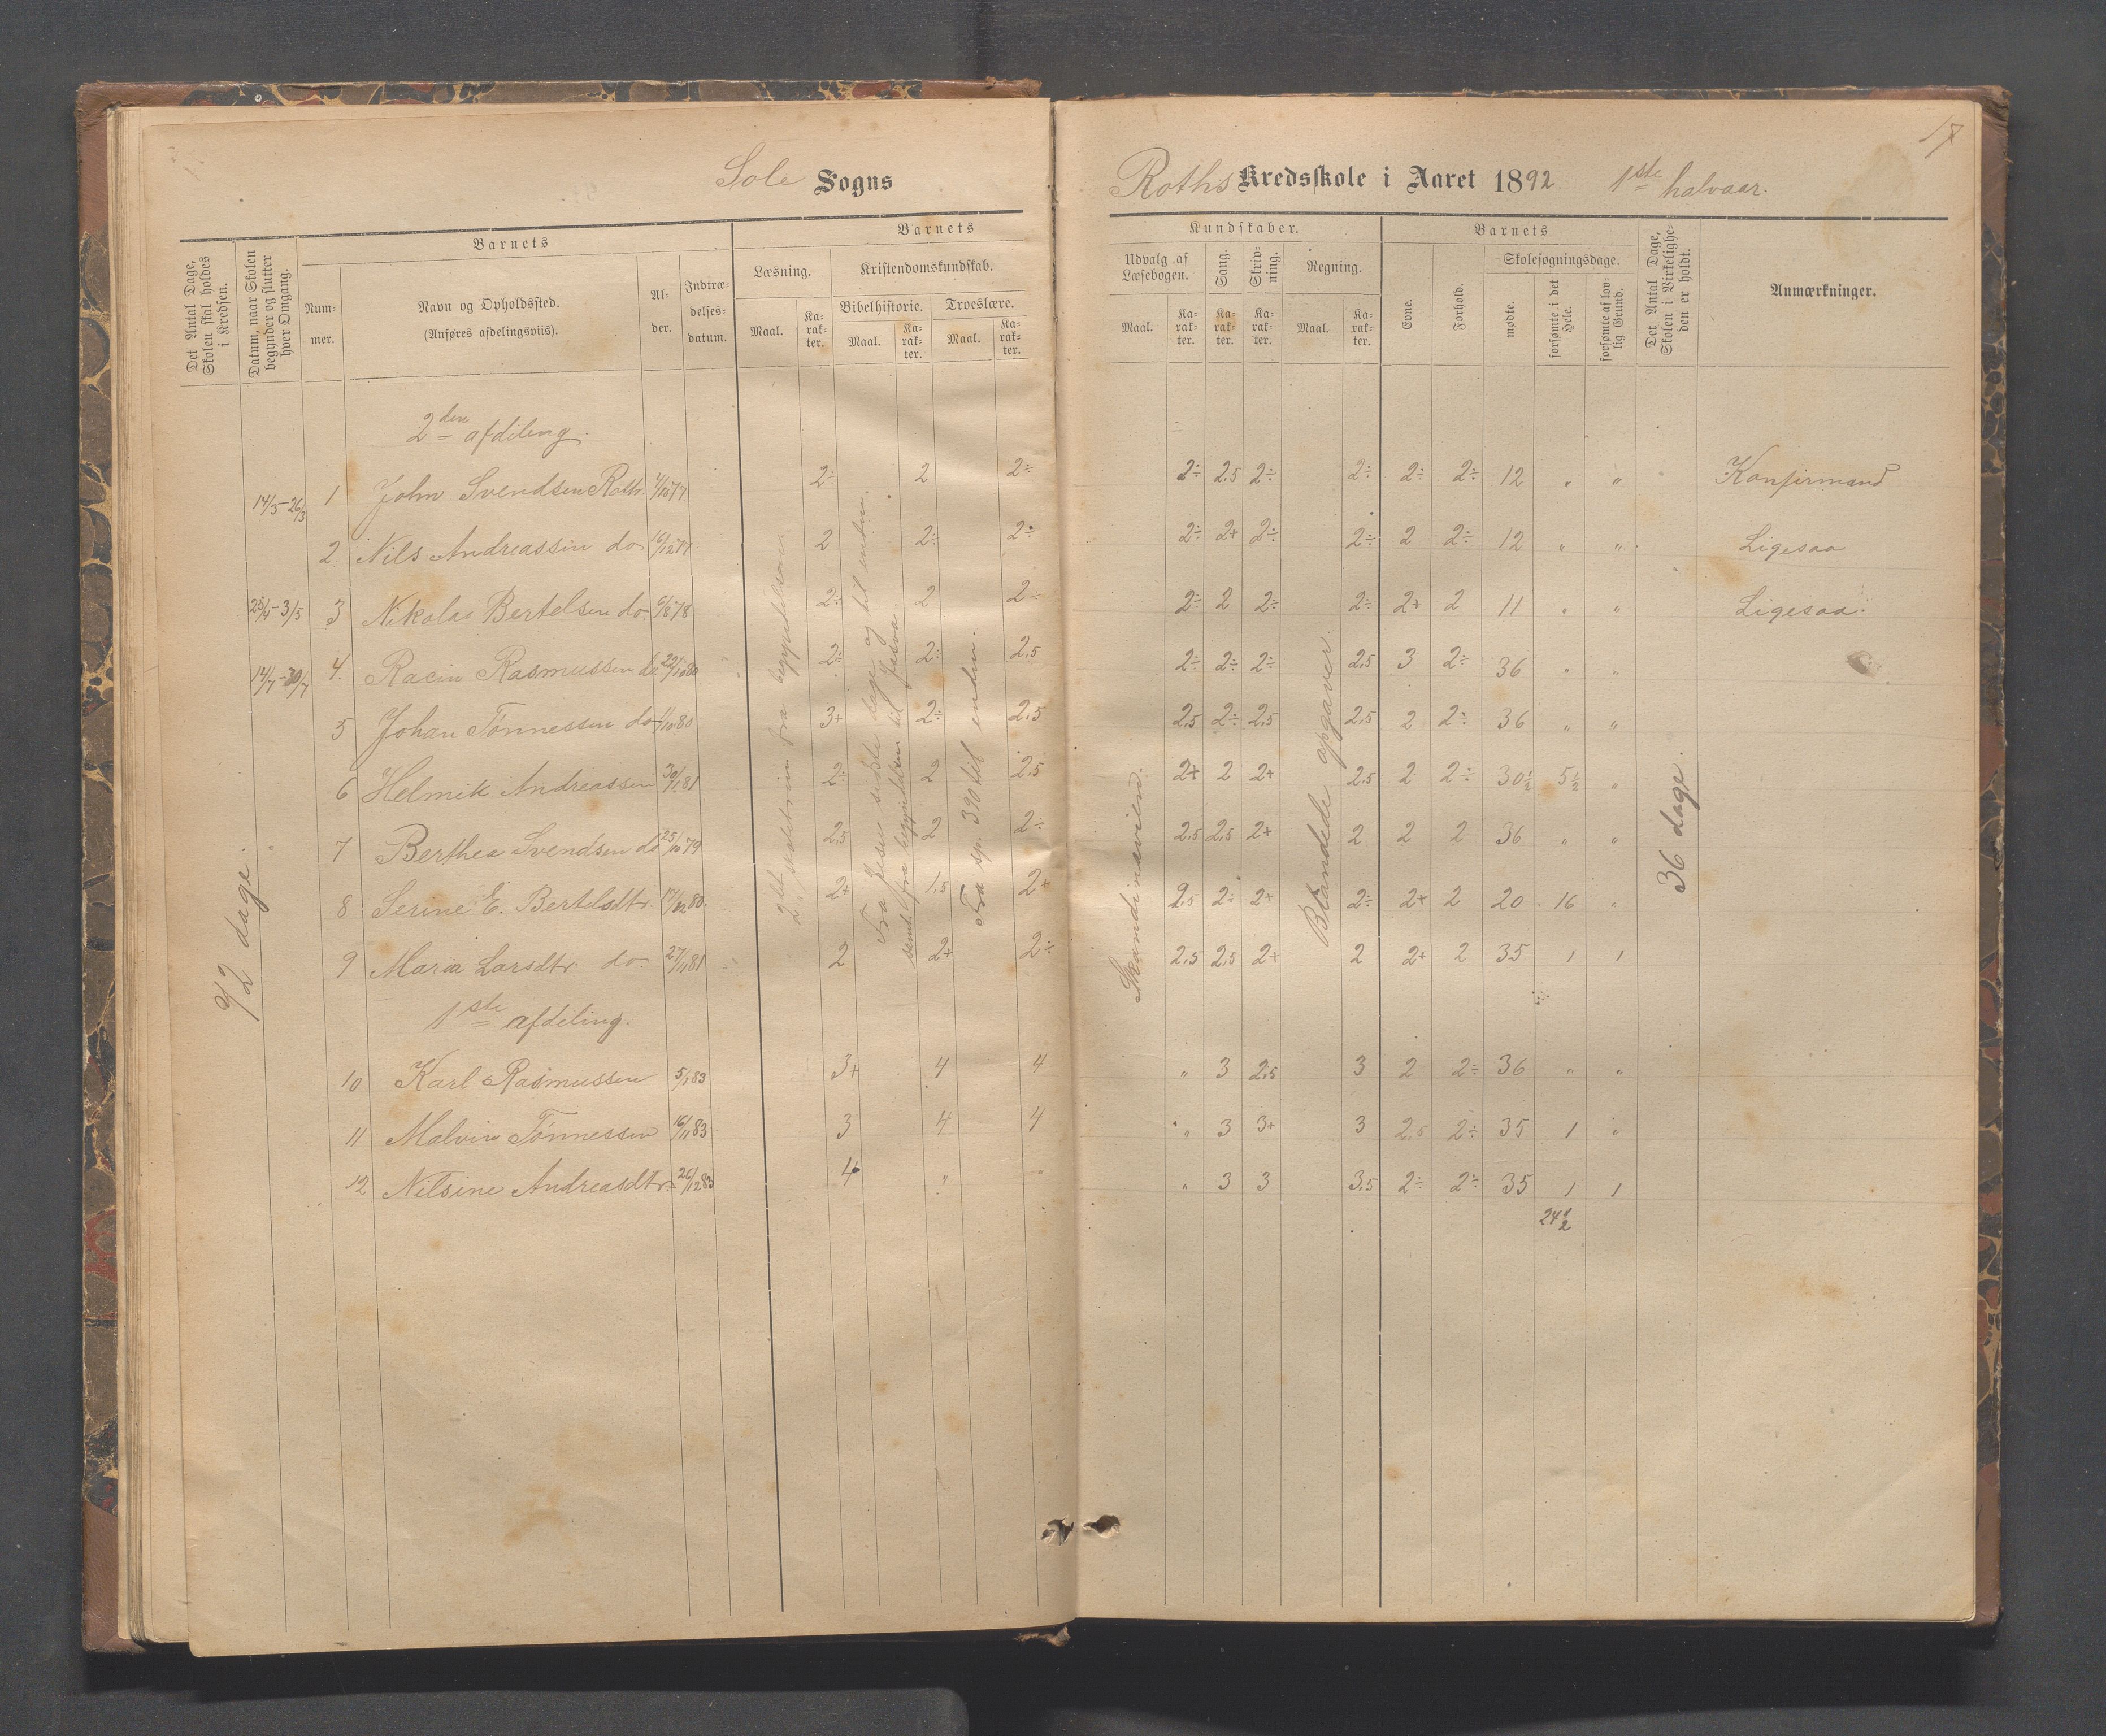 17
Sole Sogns
Roths Kredsskole i Aaret 1892. 1ste halvaar.
Det Antal Dage, Skolen skal holdes i Kredsen.
Datum, naar Skolen begynder og slutter hver Omgang.
Barnets
Nummer.
Navn og Opholdssted.
(Anføres afdelingsviis).
Alder.
Indtrædelsesdatum.
Barnets
Læsning.
Maal.
Karakter.
Kristendomskundskab.
Bibelhistorie.
Maal.
Karakter.
Troeslære.
Maal.
Karakter.
Kundskaber.
Udvalg af Læsebogen.
Maal.
Karakter.
Sang.
Karakter.
Skrivning.
Karakter.
Regning.
Maal.
Karakter.
Barnets
Evne.
Forhold.
Skolesøgningsdage.
mødte.
forsømte i det Hele.
forsømte af lovlig Grund.
Det Antal Dage, Skolen i Virkeligheden er holdt.
Anmærkninger.
2den afdeling.
14/3-26/3 1 John Svendsen Roth. 77 2÷ 2 2÷ 2÷ 2,5 2÷ 2÷ 2÷ 2÷ 12 " " Konfirmand
2 Nils Andreassen do 16/12 77 2 2÷ 2÷ 2÷ 2+ 2÷ 2÷ 2 2÷ 12 " " Ligesaa
25/4-3/5 3 Nikolai Bertelsen do. 6/8 78 2÷ 2 2÷ 2÷ 2 2÷ 2÷ 2+ 2 11 " " Ligesaa.
14/7-30/7 4. Rasmussen do 22/10 80 2÷ 2÷ 2,5 2÷ 2÷ 2÷ 2,5 3 2÷ 36 " "
5 Johan Tönnessen do 1/10 80 3+ 2÷ 2,5 2,5 2÷ 2,5 2,5 2 2÷ 36 " "
6 Helmik Andreassen 30/1 81 2÷ 2 2,5 2+ 2 2+ 2,5 2 2÷ 30½ 5½ "
7 Berthea Svendsen do 25/10 79 2,5 2 2÷ 2,5 2,5 2+ 2 2 2 36 " "
8 Serine E. Bertelsdtr. 17/12 80. 2+ 1,5 2+ 2,5 2÷ 2+ 2÷ 2+ 2 20 16 "
9 Maria Larsdtr. do. 27/11 81 2 2+ 2÷ 2,5 2,5 2+ 2 2+ 2 35 1 1
1ste afdeling.
10 Karl Rasmussen 5/1 83 3+ 4 4 " 3 2,5 3 2 2÷ 36 " "
11 Malvin Tönnessen 16/11 83 3 4 4 " 3 3+ 3 2,5 2÷ 35 1 "
12 Nilsine Andreasdtr. 26/12 83 4 " " " 3 3 3,5 2÷ 2÷ 35 1 1
24½
42 dage.
2det skoletrin fra begyndelsen
Fra Jesu sidste dage og til enden.
samt fra begyndelsen til
Fra sp. 390 til enden.
Skandinavien.
Blandede opgaver.
36 dage.